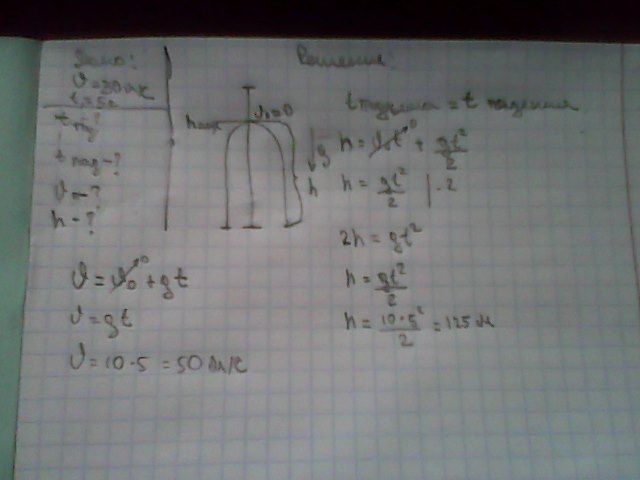 Дано:
t=5с
t под-?
t пад-?
h-?
Решение:
h max
g
h
t подъема = t падения
h = v₀t⁰ + gt²/2
h = gt²/2 | · 2
2h = gt²
h = gt²/2
h = 10·5²/2 = 125 м
v = v₀⁰ + gt
v = gt
v = 10·5 = 50 м/с